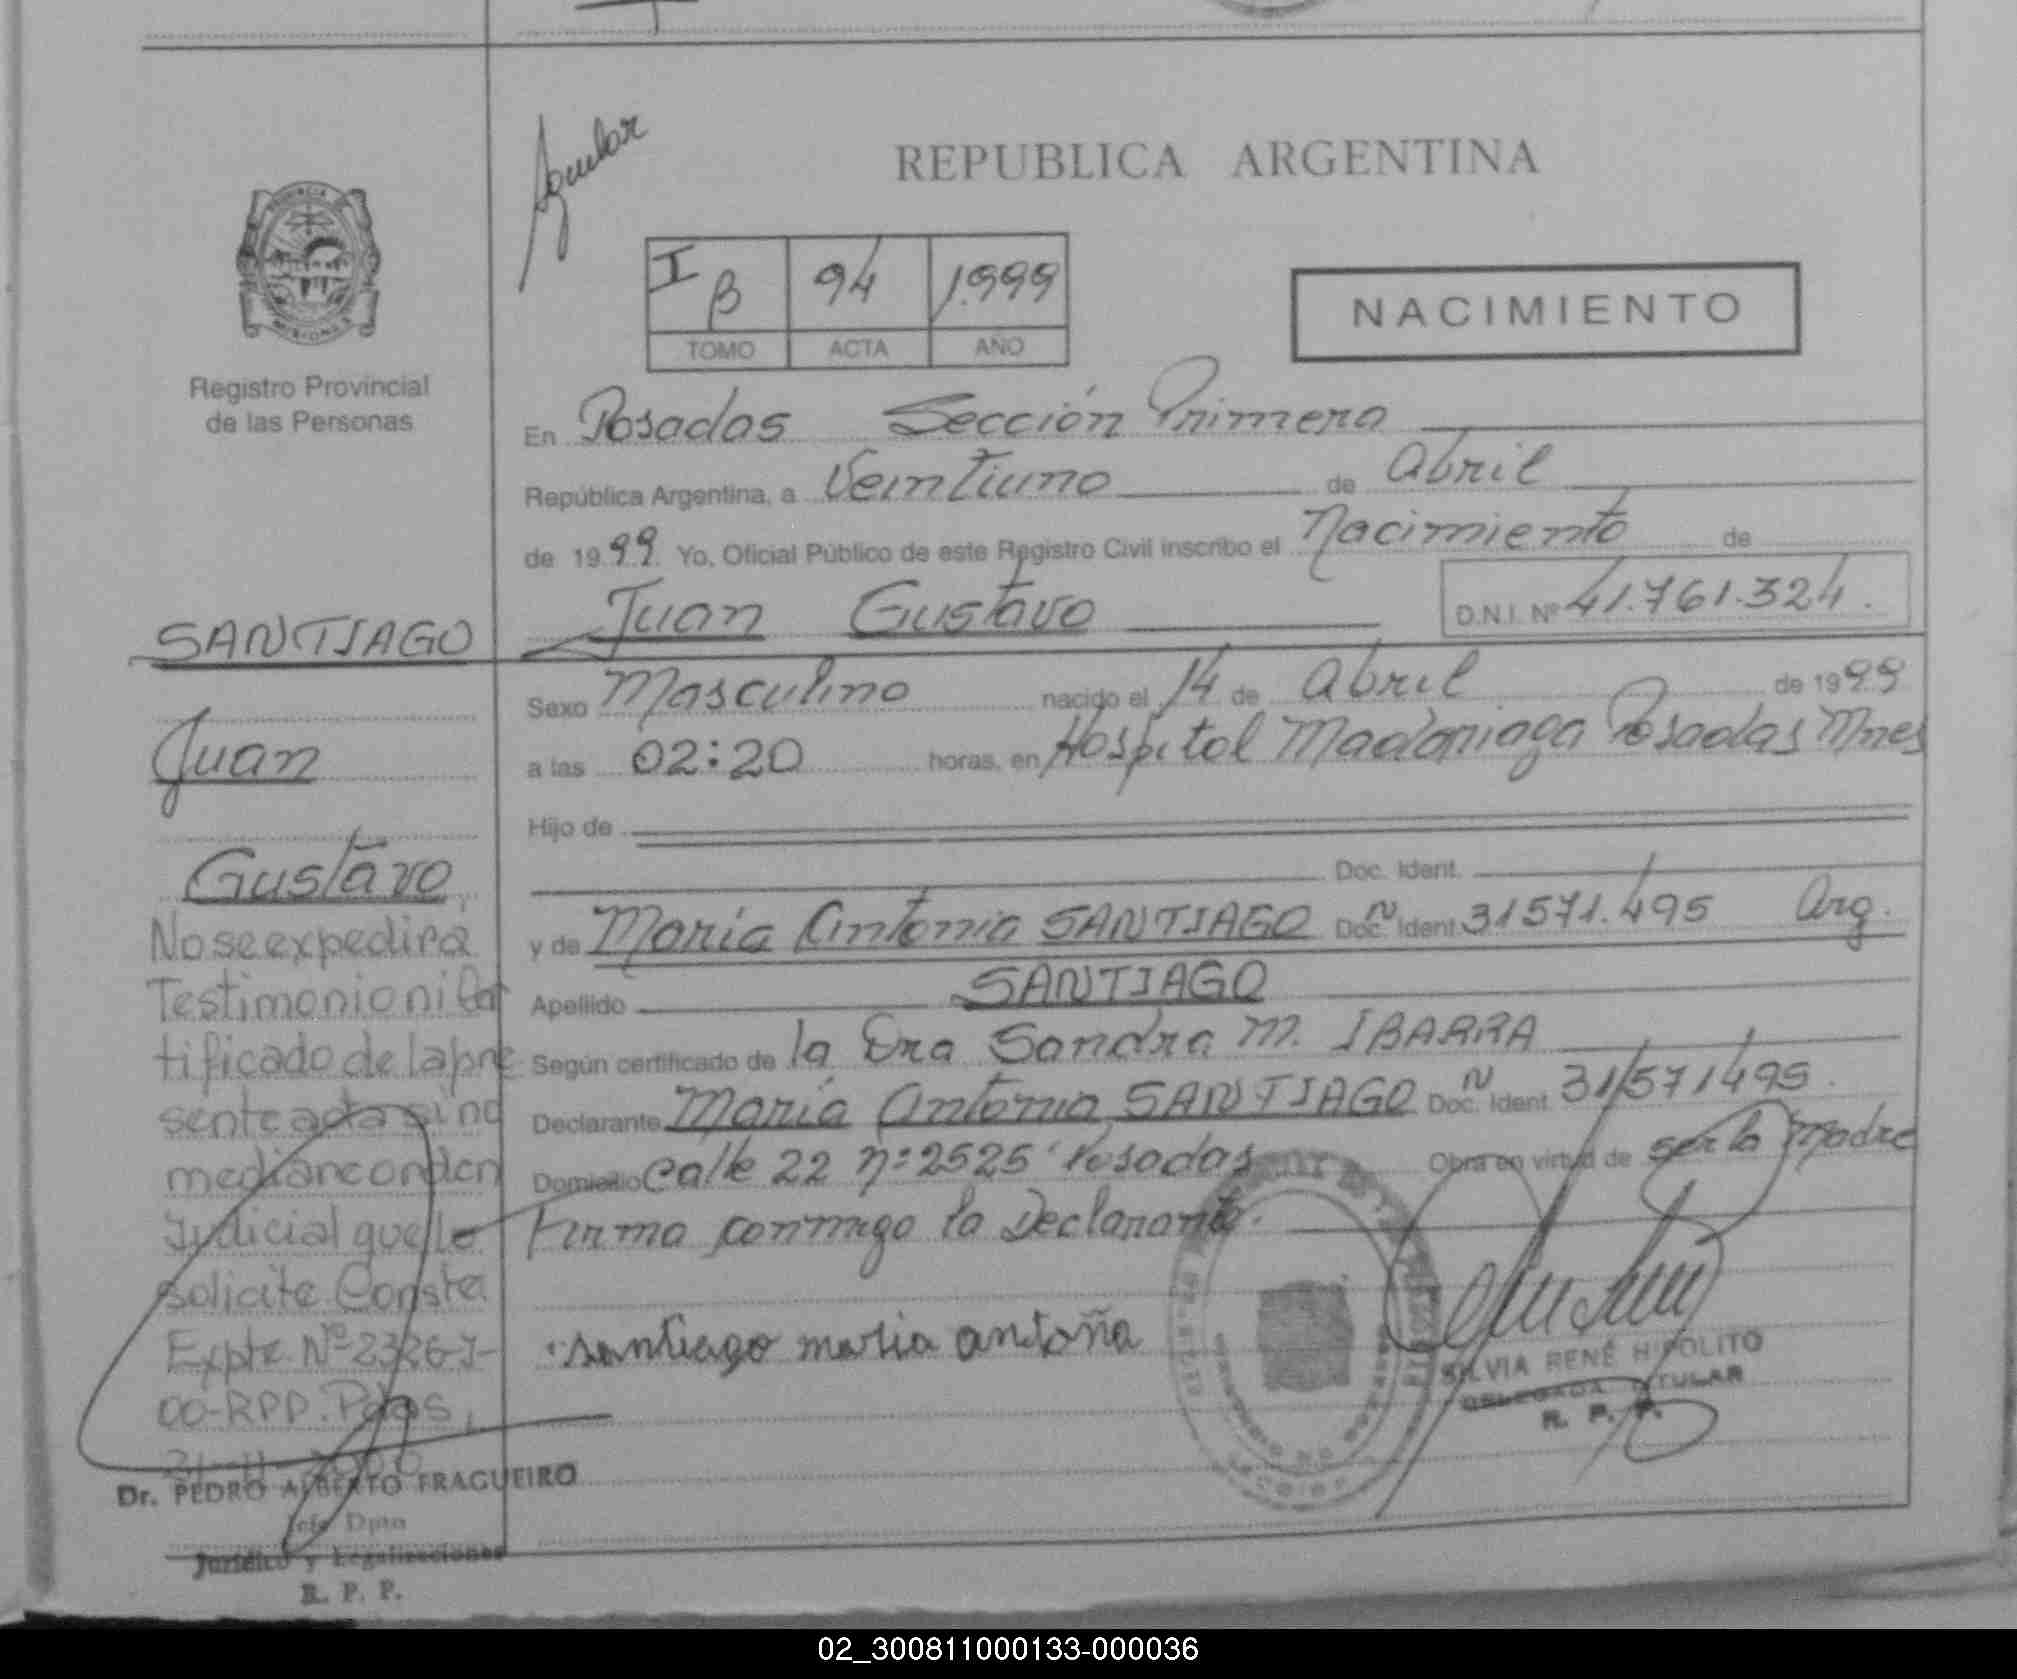 Aguilar
REPUBLICA ARGENTINA
I B 94 1.999
TOMO ACTA AÑO
NACIMIENTO
PROVINCIA
MISIONES
Registro Provincial
de las Personas
En Posadas Sección Primera
República Argentina, a Veintiuno de Abril
de 1999. Yo, Oficial Público de este Registro Civil inscribo el Nacimiento de
Juan Gustavo D.N.I. Nº 41.761.324.
Sexo Masculino nacido el 14 de Abril de 1999
a las 02:20 horas, en Hospital Madariaga Posadas Mnes
Hijo de
Doc. Ident.
y de María Antonia SANTIAGO Doc. Ident. 31571.495 Arg.
Apellido SANTIAGO
Según certificado de la Dra Sandra M. IBARRA
Declarante María Antonia SANTIAGO Doc. Ident. 31571495.
Domicilio Calle 22 nº 2525 Posadas Obra en virtud de ser la Madre
Firma conmigo la Declarante.
santiago maria antoña
SILVIA RENÉ HIPOLITO
DELEGADA TITULAR
R. P. P.
SANTIAGO
Juan
Gustavo
No se expedirá
Testimonio ni Cer
tificado de la pre
sente acta sino
mediante orden
Judicial que lo
solicite Consta
Expte. Nº 2326-J-
00-RPP. Pdas,
Dr. PEDRO ALBERTO FRAGUEIRO
Jefe Dpto
Jurídico y Legalizaciones
R. P. P.
02_300811000133-000036